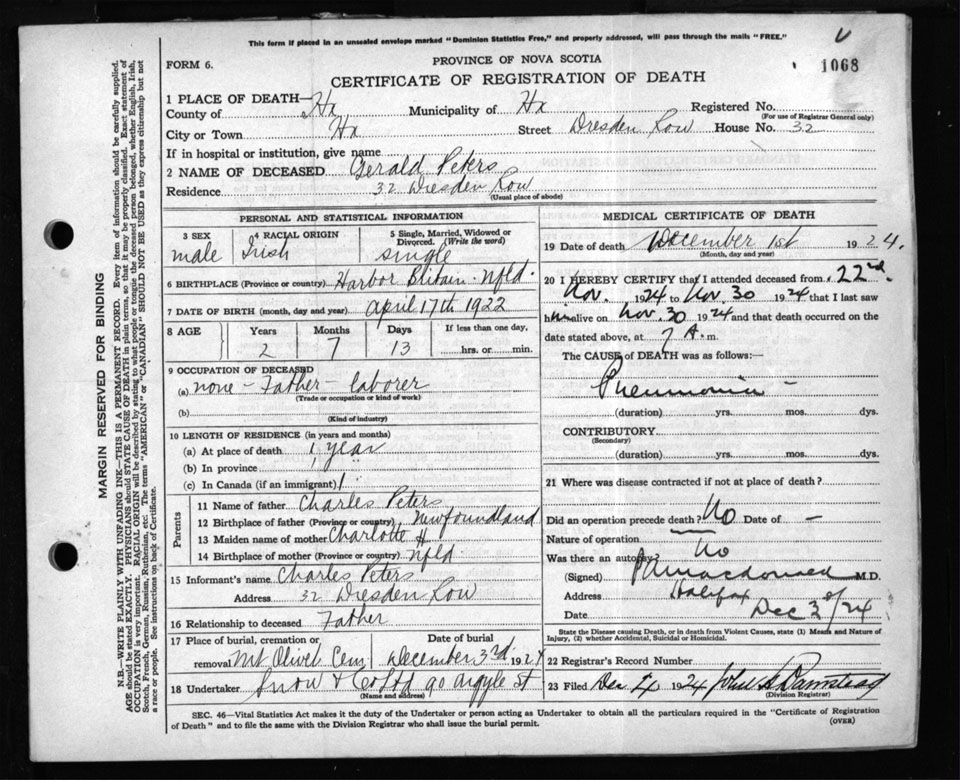 This form if placed in an unsealed envelope marked "Dominion Statistics Free," and properly addressed, will pass through the mails "FREE."
FORM 6.
PROVINCE OF NOVA SCOTIA
1068
CERTIFICATE OF REGISTRATION OF DEATH
1 PLACE OF DEATH—
County of Hx Municipality of Hx Registered No.
(For use of Registrar General only)
City or Town Hx Street Dresden Row House No. 32
If in hospital or institution, give name
2 NAME OF DECEASED Gerald Peters
Residence 32 Dresden Row
(Usual place of abode)
PERSONAL AND STATISTICAL INFORMATION
3 SEX 4 RACIAL ORIGIN 5 Single, Married, Widowed or Divorced. (Write the word)
male Irish single
6 BIRTHPLACE (Province or country) Harbor Britain. Nfld.
7 DATE OF BIRTH (month, day and year) April 17th 1922
8 AGE Years Months Days If less than one day,
2 7 13 hrs. or min.
9 OCCUPATION OF DECEASED
(a) none - Father - laborer
(Trade or occupation or kind of work)
(b)
(Kind of industry)
10 LENGTH OF RESIDENCE (in years and months)
(a) At place of death 1 year
(b) In province
(c) In Canada (if an immigrant)
Parents
11 Name of father Charles Peters
12 Birthplace of father (Province or country) Newfoundland
13 Maiden name of mother Charlotte H
14 Birthplace of mother (Province or country) Nfld
15 Informant's name Charles Peters
Address 32 Dresden Row
16 Relationship to deceased Father
17 Place of burial, cremation or removal Mt Olivet Cem Date of burial December 3rd 1924
18 Undertaker Snow & 90 Argyle St
(Name and address)
MEDICAL CERTIFICATE OF DEATH
19 Date of death December 1st 1924.
(Month, day and year)
20 I HEREBY CERTIFY that I attended deceased from 22nd
Nov. 1924 to Nov. 30 1924 that I last saw
him alive on Nov. 30 1924 and that death occurred on the
date stated above, at 7 A. m.
The CAUSE OF DEATH was as follows:
Pneumonia -
(duration) yrs. mos. dys.
CONTRIBUTORY
(Secondary)
(duration) yrs. mos. dys.
21 Where was disease contracted if not at place of death?
Did an operation precede death? No Date of -
Nature of operation
Was there an autopsy? No
(Signed) Macdonald M.D.
Address Halifax
Date Dec 3rd/24
State the Disease causing Death, or in death from Violent Causes, state (1) Means and Nature of
Injury, (2) whether Accidental, Suicidal or Homicidal.
22 Registrar's Record Number
23 Filed Dec 4 1924 John A
(Division Registrar)
SEC. 46—Vital Statistics Act makes it the duty of the Undertaker or person acting as Undertaker to obtain all the particulars required in the "Certificate of Registration
of Death" and to file the same with the Division Registrar who shall issue the burial permit.
(OVER)
MARGIN RESERVED FOR BINDING
N.B.—WRITE PLAINLY WITH UNFADING INK—THIS IS A PERMANENT RECORD. Every item of information should be carefully supplied.
AGE should be stated EXACTLY. PHYSICIANS should STATE CAUSE OF DEATH in plain terms, so that it may be properly classified. Exact statement of
OCCUPATION is very important. RACIAL ORIGIN will be described by stating to what people or tongue the deceased person belonged, whether English, Irish,
Scotch, French, German, Russian, Ruthenian, etc. The terms "AMERICAN" or "CANADIAN" SHOULD NOT BE USED as they express citizenship but not
a race or people. See instructions on back of Certificate.